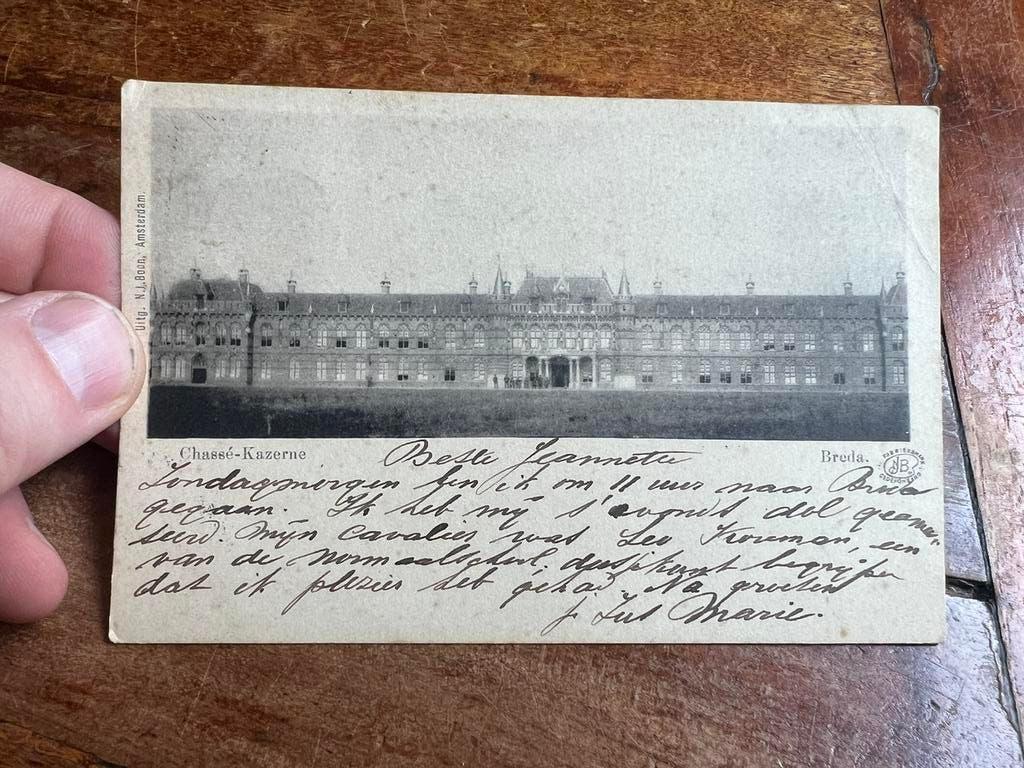 Uitg. N.J. Boon, Amsterdam.
Chassé-Kazerne
Breda.
JB
Beste Jeannette
Zondagmorgen ben ik om 11 uur naar Breda
gegaan. Ik heb mij s'avonds dol geamu-
seerd. Mijn cavalier was Leo Kooreman, een
van de normaalschool, dus je kunt begrijpe
dat ik plezier heb gehad. Na groeten
Marie.